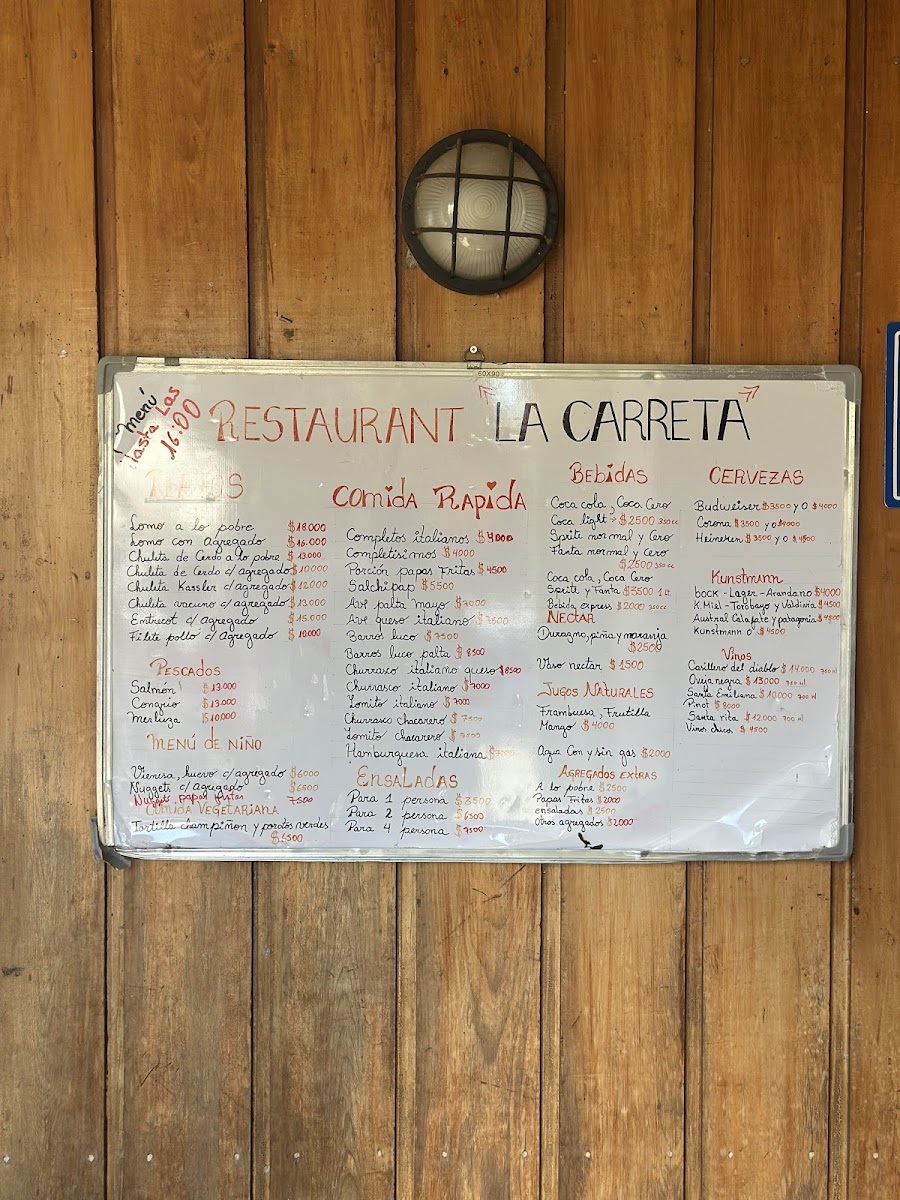 60X90
Menú
Hasta Las
16:00
RESTAURANT LA CARRETA
PLATOS
Lomo a lo pobre $18.000
Lomo con Agregado $16.000
Chuleta de Cerdo a lo pobre $13.000
Chuleta de Cerdo c/agregado $10000
Chuleta Kassler c/agregado $12000
Chuleta vacuno c/agregado $13000
Entrecot c/agregado $15.000
Filete pollo c/agregado $10000
PESCADOS
Salmón $13.000
Congrio $13.000
Merluza $10000
MENÚ DE NIÑO
Vienesa, huevo c/agregado $6000
Nuggets c/agregado $6500
Nuggets papas fritas 7500
COMIDA VEGETARIANA
Tortilla champiñon y porotos verdes
Comida Rapida
Completos italianos $4000
Completisimos $4000
Porción papas Fritas $4500
Salchipap $5500
Ave palta mayo $7000
Ave queso italiano $7500
Barros luco $7500
Barros luco palta $8500
Churrasco italiano queso $8500
Churrasco italiano $7000
Lomito italiano $7000
Churrasco chacarero $7500
Lomito chacarero $7500
Hamburguesa italiana
ENSALADAS
Para 1 persona $3500
Para 2 persona $6500
Para 4 persona $7500
BEBIDAS
Coca cola, Coca Cero
Coca light $2500 350cc
Sprite normal y Cero
Fanta normal y cero
$2500 350cc
Coca cola, Coca Cero
Sprite y Fanta $3500 1 Lt.
Bebida express $2000 250cc
NECTAR
Durazno, piña y naranja
$2500
Vaso nectar $1500
JUGOS NATURALES
Frambuesa, Frutilla
Mango $4000
Agua Con y sin gas $2000
AGREGADOS EXTRAS
A lo pobre $2500
Papas Fritas $2000
ensaladas $2500
otros agregados $2000
CERVEZAS
Budweiser $3500 y 0 $4000
Corona $3500 y 0 $4000
Heineken $3500 y 0 $4500
Kunstmann
bock - Lager - Arandano $4000
K. Miel - Torobayo y Valdivia $4500
Austral Calafate y patagonia $4800
Kunstmann 0° $4500
Vinos
Casillero del diablo $14.000 750 ml
Oveja negra $13000 750 ml
Santa Emiliana $10000 700 ml
Pinot $8000
Santa rita $12.000 700 ml
Vinos chicos $4500